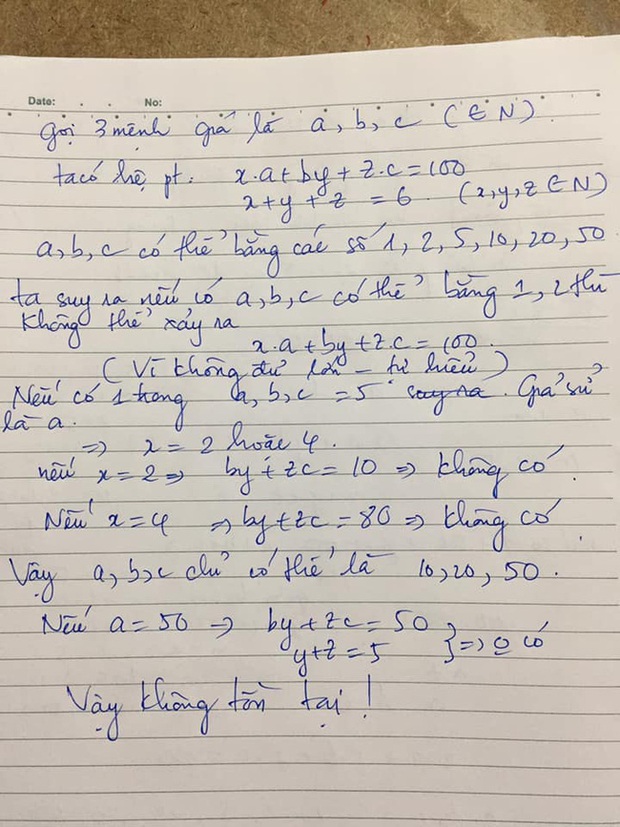 Date: No:
Gọi 3 mệnh giá là a, b, c (∈ N)
ta có hệ pt: x.a + by + z.c = 100
x + y + z = 6 (x, y, z ∈ N)
a, b, c có thể bằng các số 1, 2, 5, 10, 20, 50
ta suy ra nếu có a, b, c có thể bằng 1, 2 thì
không thể xảy ra
x.a + by + z.c = 100
(Vì không đủ lớn - tự hiểu)
Nếu có 1 trong a, b, c = 5 suy ra. Giả sử
là a.
=> x = 2 hoặc 4.
nếu x = 2 => by + zc = 10 => không có
Nếu x = 4 => by + zc = 80 => không có
Vậy a, b, c chỉ có thể là 10, 20, 50.
Nếu a = 50 => by + zc = 50
y + z = 5 } => o có
Vậy không tồn tại!